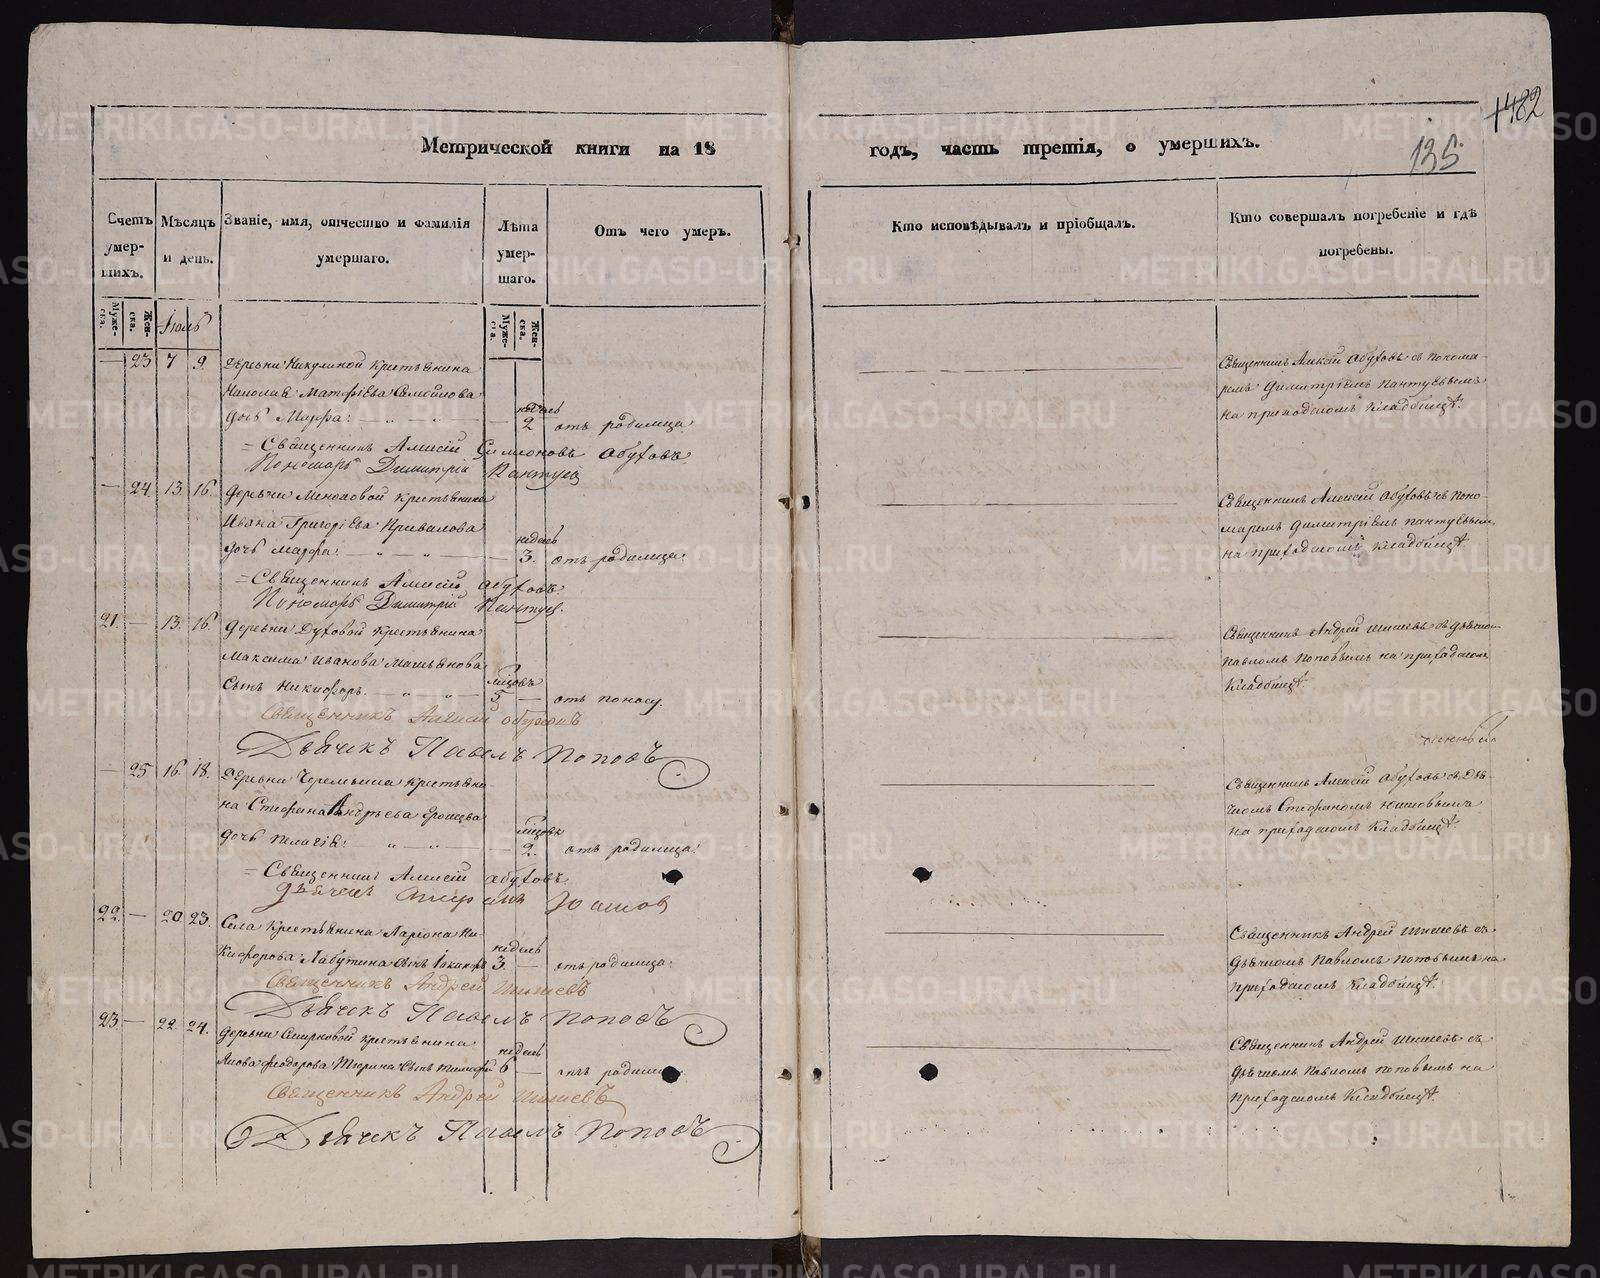 Метрической книги на 18
годъ, часть третія, о умершихъ.
482
135
Счетъ умер-шихъ.
Мѣсяцъ и день.
Званіе, имя, отчество и фамилія умершаго.
Лѣта умер-шаго.
Отъ чего умеръ.
Кто исповѣдывалъ и пріобщалъ.
Кто совершалъ погребеніе и гдѣ погребены.
Муже-ска.
Жен-ска.
Іюль
Муже-ска.
Жен-ска.
23 7 9. Деревни Никулиной Крестьянина
Николая Матфіева Самойлова
дочь Марфа. недель 2 отъ родимца
= Священникъ Алексій Симеоновъ Обуховъ
Пономарь Димитрій Пантуев
Священникъ Алексій Обуховъ съ понома-
ремъ Димитріемъ Пантуевымъ
на приходскомъ Кладбищѣ.
24. 13. 16. Деревни Крестьянина
Ивана Григоріева Кривалова
дочь марфа. недель 3. отъ родимца.
= Священникъ Алексій Обуховъ
Пономарь Димитрій Пантуев.
Священникъ Алексій Обуховъ съ поно-
маремъ Димитріемъ Пантуевымъ
на приходскомъ Кладбищѣ.
21. 13. 16. Деревни Духовой Крестьянина
Максима Иванова
Сынъ Никифоръ. мѣсяцовъ 5 отъ поносу.
Священникъ Алексій Обуховъ
Дьячекъ Павелъ Поповъ
Священникъ Андрей Шишевъ съ дьячкомъ
Павломъ Поповымъ на приходскомъ
Кладбищѣ.
25 16. 18. Деревни Крестьяни-
на Стефана Андреева
дочь Пелагія. мѣсяцовъ 2. отъ родимца.
= Священникъ Алексій Обуховъ
Дьячекъ Стефанъ
Священникъ Алексій Обуховъ съ Дья-
чкомъ Стефаномъ
на приходскомъ Кладбищѣ.
22. 20 23. Села Крестьянина Ларіона Ни-
кифорова Лабутина сынъ недель 3. отъ родимца.
Священникъ Андрей Шишевъ
Дьячекъ Павелъ Поповъ
Священникъ Андрей Шишевъ съ
дьячкомъ Павломъ Поповымъ на
приходскомъ Кладбищѣ.
23. 22. 24. Деревни Смирновой крестьянина
Якова Феодорова Тюрина сынъ Тимофей недель 6 отъ родимца
Священникъ Андрей Шишевъ
Дьячекъ Павелъ Поповъ
Священникъ Андрей Шишевъ съ
дьячкомъ Павломъ Поповымъ на
приходскомъ Кладбищѣ.
METRIKI.GASO-URAL.RU